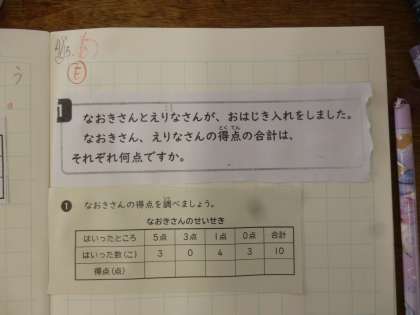 1
なおきさんとえりなさんが、おはじき入れをしました。
なおきさん、えりなさんの得点の合計は、
それぞれ何点ですか。
❶ なおきさんの得点を調べましょう。
なおきさんのせいせき
はいったところ 5点 3点 1点 0点 合計
はいった数(こ) 3 0 4 3 10
得点(点)